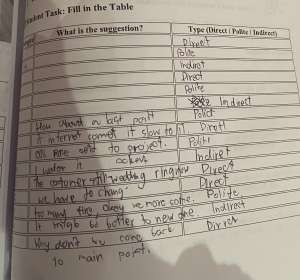 Student Task: Fill in the Table
What is the suggestion? Type (Direct / Polite / Indirect)
Direct
Polite
Indirect
Direct
Polite
Indirect
How about a last point Polict
it internet comet it slow to Dirett
send to project. Polite
I water it Indiret
The costumer still wedding ring now Direct
we have to chang. Direct
too many fire, we more some. Polite
It might be better to new one Indirect
Why don't we come back Dirret
to main point.